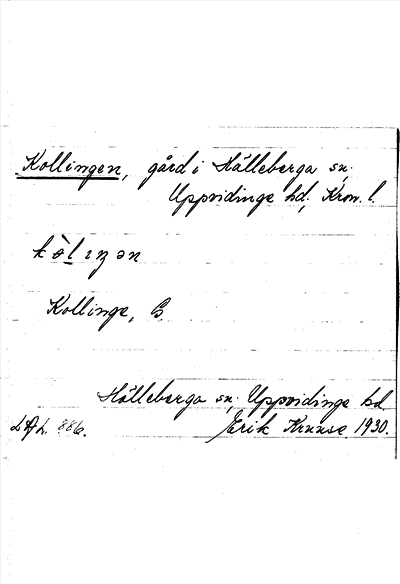 Kollingen, gård i Hälleberga sn,
Uppvidinge hd, Kron. l.
kòlıŋən
Kollinge, G.
Hälleberga sn, Uppvidinge hd.
LAL 886. Erik Kruuse 1930.